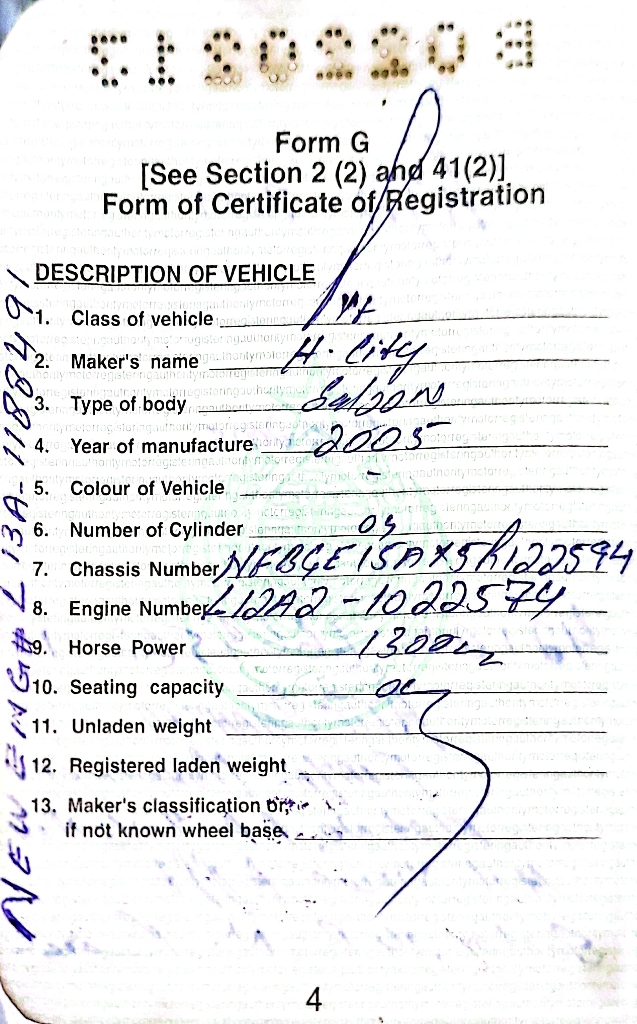 Form G
[See Section 2 (2) and 41(2)]
Form of Certificate of Registration
DESCRIPTION OF VEHICLE
1. Class of vehicle
2. Maker's name H. City
3. Type of body Saloon
4. Year of manufacture 2005
5. Colour of Vehicle -
6. Number of Cylinder 04
7. Chassis Number
8. Engine Number L12A2-1022574
9. Horse Power
10. Seating capacity
11. Unladen weight
12. Registered laden weight
13. Maker's classification or,
if not known wheel base
NEW ENG# L13A-1188491
4